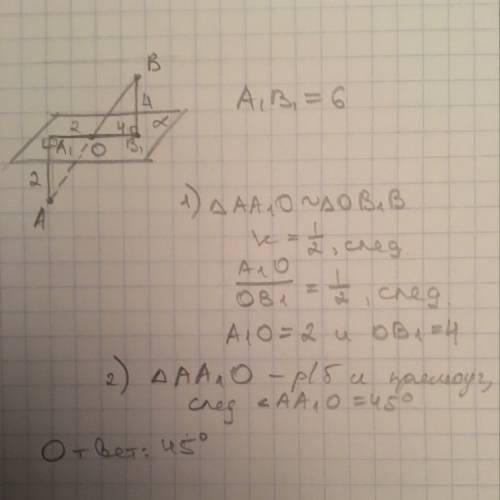 B
4
α
2
4
A₁
O
B₁
2
A
A₁B₁ = 6
1) △AA₁O ~ △OB₁B
k = 1/2, след.
A₁O/OB₁ = 1/2, след.
A₁O = 2 и OB₁ = 4
2) △AA₁O – р/б и прямоуг,
след ∠AA₁O = 45°
Ответ: 45°